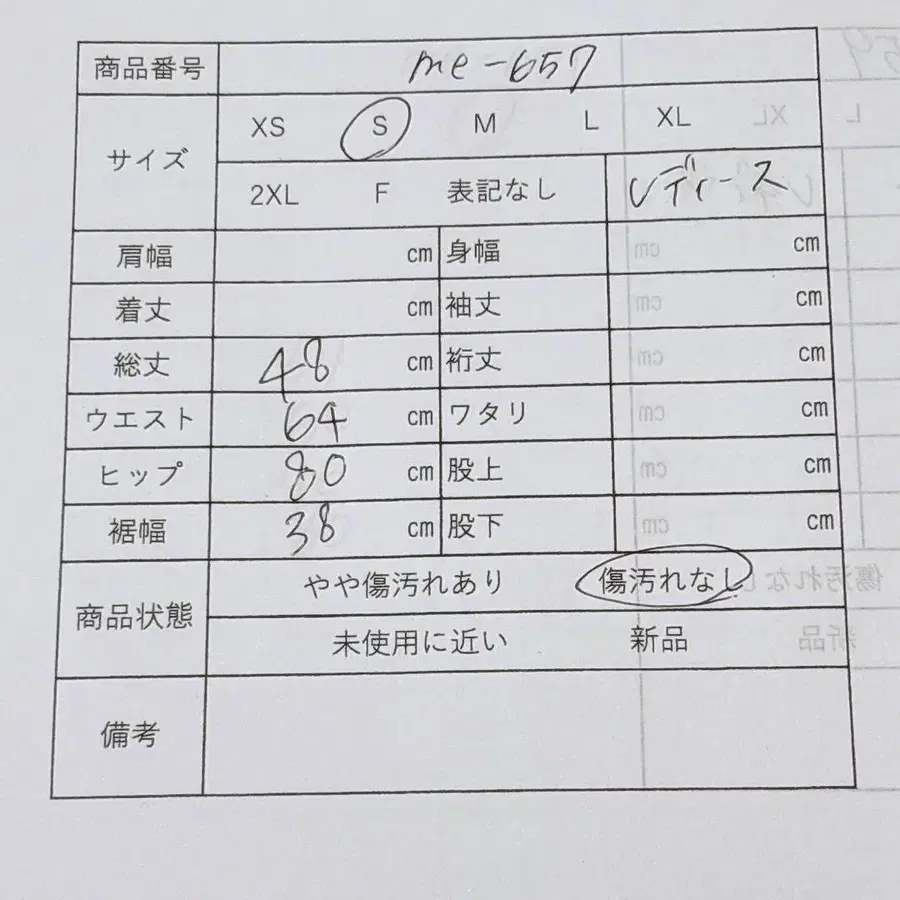 商品番号 me-657
サイズ XS S M L XL
2XL F 表記なし レディース
肩幅 cm 身幅 cm
着丈 cm 袖丈 cm
総丈 48 cm 裄丈 cm
ウエスト 64 cm ワタリ cm
ヒップ 80 cm 股上 cm
裾幅 38 cm 股下 cm
商品状態 やや傷汚れあり 傷汚れなし
未使用に近い 新品
備考